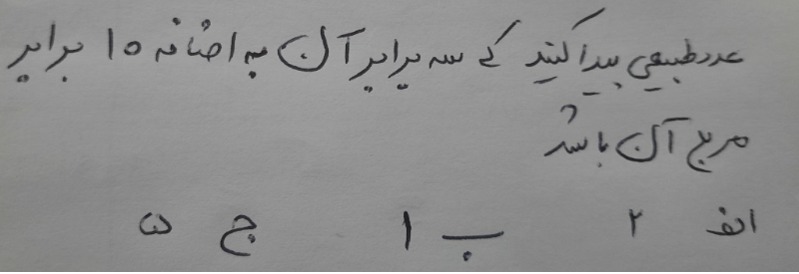 عدد طبیعی پیدا کنید که سه برابر آن به اضافه ۱۰ برابر
مربع آن باشد
الف ۲ ب ۱ ج ۵